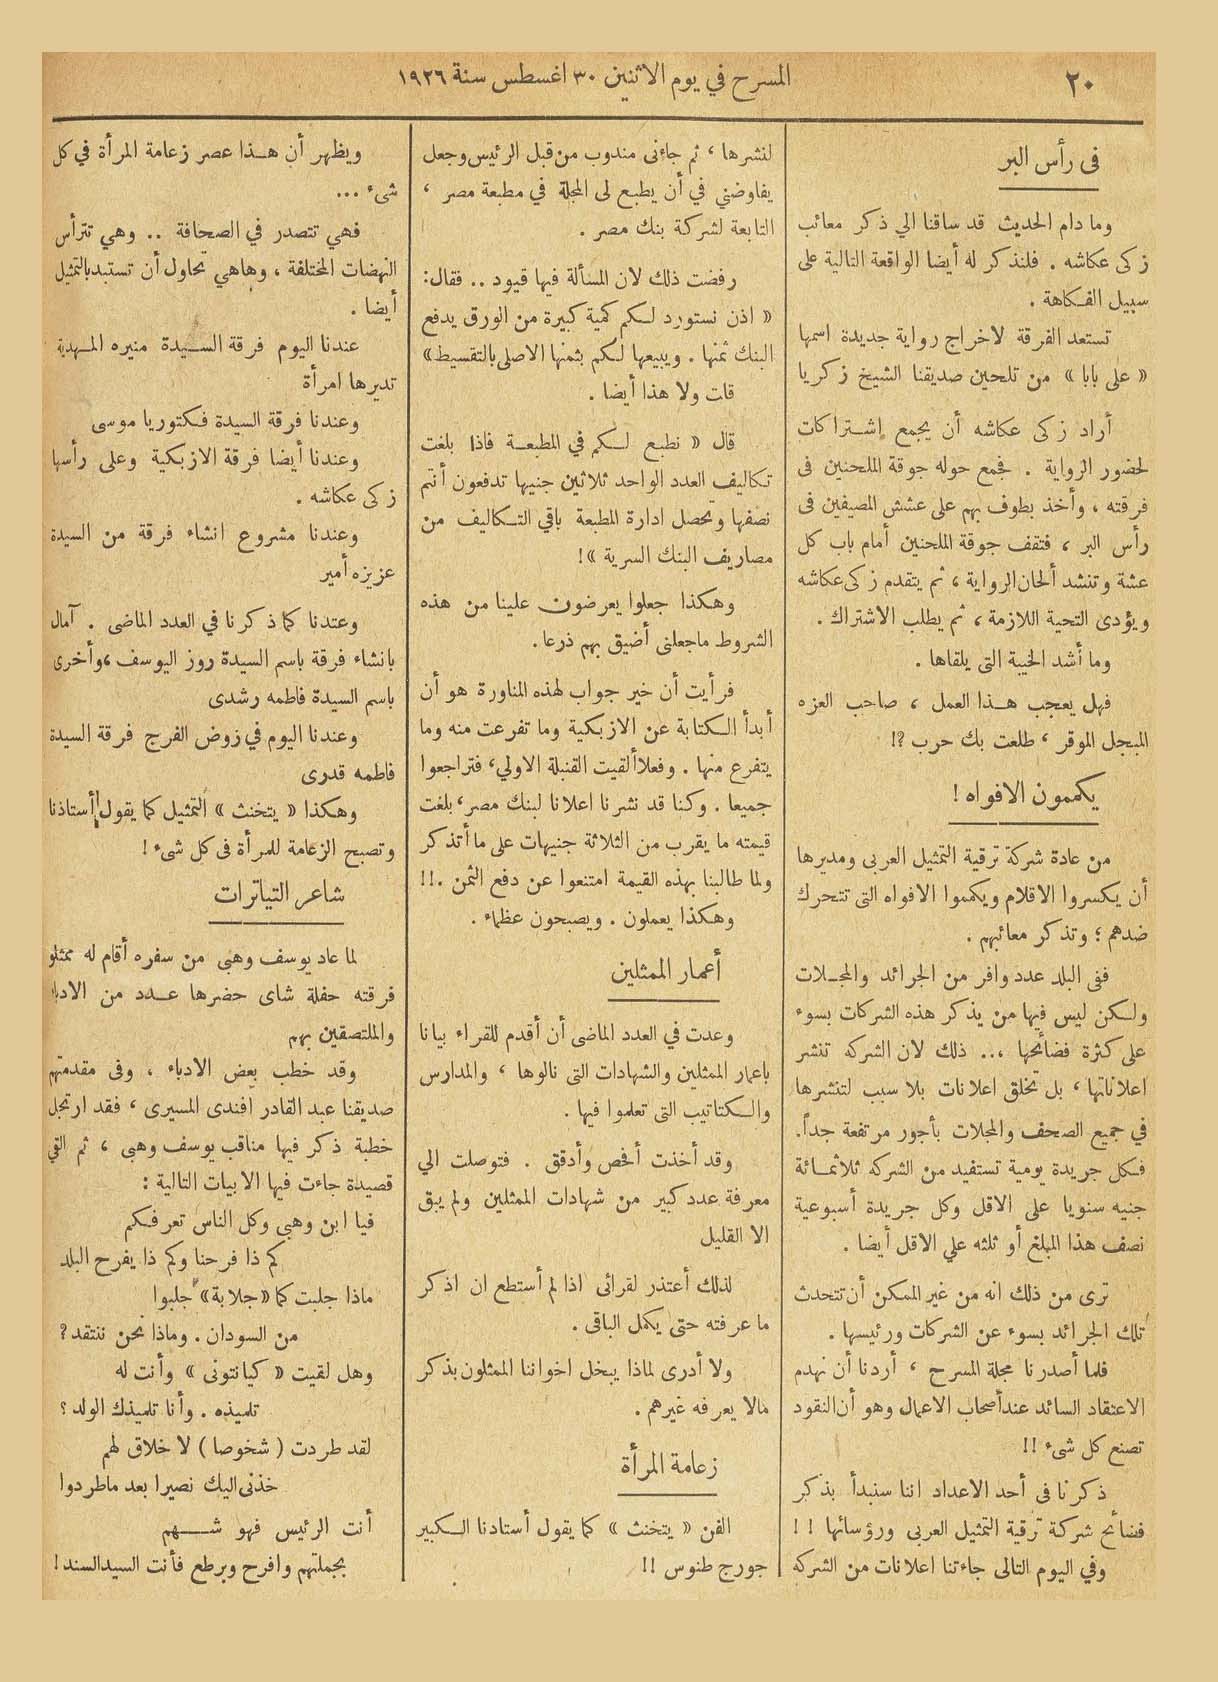 ٢٠
المسرح في يوم الاثنين ٣٠ اغسطس سنة ١٩٢٦
فى رأس البر
وما دام الحديث قد ساقنا الي ذكر معائب
زكى عكاشه . فلنذكر له أيضا الواقعة التالية على
سبيل الفكاهة .
تستعد الفرقة لاخراج رواية جديدة اسمها
« على بابا » من تلحين صديقنا الشيخ زكريا
أراد زكى عكاشه أن يجمع اشتراكات
لحضور الرواية . فجمع حوله جوقة الملحنين فى
فرقته ، وأخذ يطوف بهم على عشش المصيفين فى
رأس البر ، فتقف جوقة الملحنين أمام باب كل
عشة وتنشد ألحان الرواية ، ثم يتقدم زكى عكاشه
ويؤدى التحية اللازمة ، ثم يطلب الاشتراك .
وما أشد الخيبة التى يلقاها .
فهل يعجب هذا العمل ، صاحب العزه
المبجل الموقر ، طلعت بك حرب ؟!
يكممون الافواه !
من عادة شركة ترقية التمثيل العربى ومديرها
أن يكسروا الاقلام ويكمموا الافواه التى تتحرك
ضدهم ؛ وتذكر معائبهم .
ففى البلد عدد وافر من الجرائد والمجلات
ولكن ليس فيها من يذكر هذه الشركات بسوء
على كثرة فضائحها ... ذلك لان الشركه تنشر
اعلاناتها ، بل تخلق اعلانات بلا سبب لتنشرها
في جميع الصحف والمجلات بأجور مرتفعة جداً.
فكل جريدة يومية تستفيد من الشركه ثلاثمائة
جنيه سنويا على الاقل وكل جريدة أسبوعية
نصف هذا المبلغ أو ثلثه علي الاقل أيضا .
ترى من ذلك انه من غير الممكن أن تتحدث
تلك الجرائد بسوء عن الشركات ورئيسها .
فلما أصدرنا مجلة المسرح ، أردنا أن نهدم
الاعتقاد السائد عند أصحاب الاعمال وهو أن النقود
تصنع كل شىء !!
ذكرنا فى أحد الاعداد اننا سنبدأ بذكر
فضائح شركة ترقية التمثيل العربى ورؤسائها ! !
وفي اليوم التالى جاءتنا اعلانات من الشركه
لنشرها ، ثم جاءنى مندوب من قبل الرئيس وجعل
يفاوضني في أن يطبع لى المجلة في مطبعة مصر ،
التابعة لشركة بنك مصر .
رفضت ذلك لان المسألة فيها قيود .. فقال:
« اذن نستورد لكم كمية كبيرة من الورق يدفع
البنك ثمنها . ويبيعها لكم بثمنها الاصلى بالتقسيط»
قلت ولا هذا أيضا .
قال « نطبع لكم في المطبعة فاذا بلغت
تكاليف العدد الواحد ثلاثين جنيها تدفعون أنتم
نصفها وتحصل ادارة المطبعة باقي التكاليف من
مصاريف البنك السرية »!
وهكذا جعلوا يعرضون علينا من هذه
الشروط ماجعلنى أضيق بهم ذرعا.
فرأيت أن خير جواب لهذه المناورة هو أن
أبدأ الكتابة عن الازبكية وما تفرعت منه وما
يتفرع منها . وفعلا ألقيت القنبلة الاولي، فتراجعوا
جميعا . وكنا قد نشرنا اعلانا لبنك مصر، بلغت
قيمته ما يقرب من الثلاثة جنيهات على ما أتذكر
ولما طالبنا بهذه القيمة امتنعوا عن دفع الثمن .!!
وهكذا يعملون . ويصبحون عظماء .
أعمار الممثلين
وعدت في العدد الماضى أن أقدم للقراء بيانا
باعمار الممثلين والشهادات التى نالوها ، والمدارس
والكتاتيب التى تعلموا فيها .
وقد أخذت أفحص وأدقق . فتوصلت الي
معرفة عدد كبير من شهادات الممثلين ولم يبق
الا القليل
لذلك أعتذر لقرائى اذا لم أستطع ان اذكر
ما عرفته حتى يكمل الباقى .
ولا أدرى لماذا يبخل اخواننا الممثلون بذكر
مالا يعرفه غيرهم .
زعامة المرأة
الفن « يتخنث » كما يقول أستاذنا الكبير
جورج طنوس !!
ويظهر أن هذا عصر زعامة المرأة في كل
شىء ...
فهي تتصدر في الصحافة .. وهي تترأس
النهضات المختلفة ، وهاهي تحاول أن تستبد بالتمثيل
أيضا .
عندنا اليوم فرقة السيدة منيره المهدية
تديرها امرأة
وعندنا فرقة السيدة فكتوريا موسى
وعندنا أيضا فرقة الازبكية وعلى رأسها
زكى عكاشه .
وعندنا مشروع انشاء فرقة من السيدة
عزيزه أمير
وعندنا كما ذكرنا في العدد الماضى . آمال
بانشاء فرقة باسم السيدة روز اليوسف ، وأخرى
باسم السيدة فاطمه رشدى
وعندنا اليوم في روض الفرج فرقة السيدة
فاطمه قدرى
وهكذا « يتخنث » التمثيل كما يقول أستاذنا
وتصبح الزعامة للمرأة فى كل شىء !
شاعر التياترات
لما عاد يوسف وهبى من سفره أقام له ممثلو
فرقته حفلة شاى حضرها عدد من الادباء
والملتصقين بهم
وقد خطب بعض الادباء . وفى مقدمتهم
صديقنا عبد القادر أفندى المسيرى ، فقد ارتجل
خطبة ذكر فيها مناقب يوسف وهبى ، ثم القي
قصيدة جاءت فيها الابيات التالية :
فيا ابن وهبى وكل الناس تعرفكم
كم ذا فرحنا وكم ذا يفرح البلد
ماذا جلبت كما «جلابة» جلبوا
من السودان . وماذا نحن ننتقد؟
وهل لقيت « كيانتونى » وأنت له
تلميذه . وأنا تلميذك الولد ؟
لقد طردت ( شخوصا ) لا خلاق لهم
خذنى اليك نصيرا بعد ماطردوا
أنت الرئيس فهو شهم
بجملتهم وافرح وبرطع فأنت السيد السند !